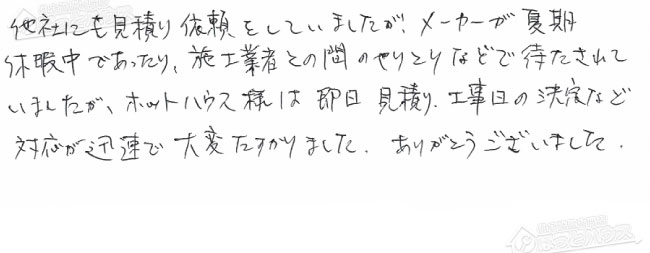 他社にも見積り依頼をしていましたが、メーカーが夏期
休暇中であったり、施工業者との間のやりとりなどで待たされて
いましたが、ホットハウス様は即日見積り、工事日の決定など
対応が迅速で大変たすかりました。ありがとうございました。